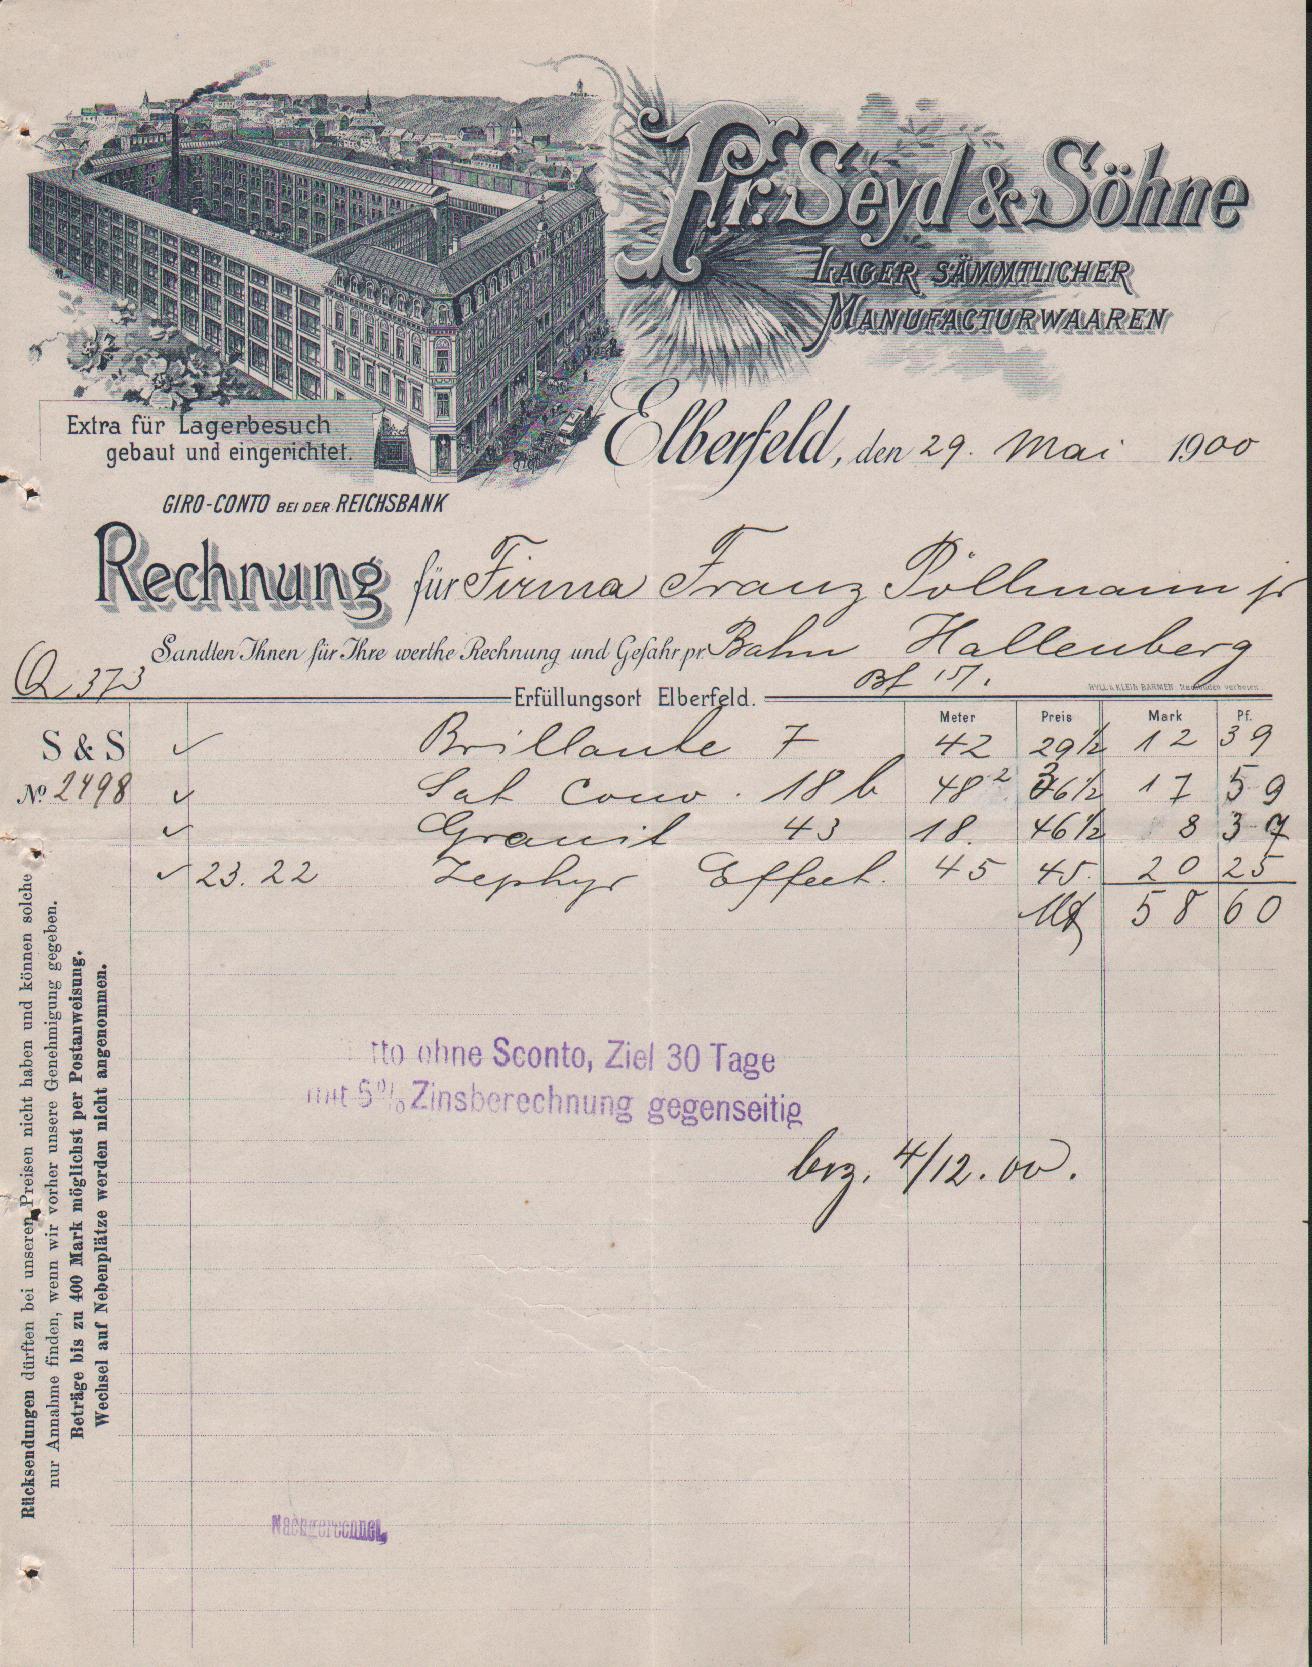 Fr. Seyd & Söhne
LAGER SÄMMTLICHER
MANUFACTURWAAREN
Extra für Lagerbesuch
gebaut und eingerichtet.
GIRO-CONTO BEI DER REICHSBANK
Elberfeld, den 29. Mai 1900
Rechnung für Firma Franz Pöllmann jr
Sandten Ihnen für Ihre werthe Rechnung und Gefahr pr. Bahn Hallenberg
Q 373
HYLL & KLEIN BARMEN
Erfüllungsort Elberfeld.
Meter Preis Mark Pf.
S & S Brillante 7 42 29½ 12 39
No 2498 Sat Couv. 18 b 48² 36½ 17 59
Granit 43 18. 46½ 8 37
23.22 Zephyr Effect. 45 45. 20 25
M 58 60
tto ohne Sconto, Ziel 30 Tage
mit 5% Zinsberechnung gegenseitig
brz. 4/12.00.
Rücksendungen dürften bei unseren Preisen nicht haben und können solche
nur Annahme finden, wenn wir vorher unsere Genehmigung gegeben.
Beträge bis zu 400 Mark möglichst per Postanweisung.
Wechsel auf Nebenplätze werden nicht angenommen.
Nachgerechnet,